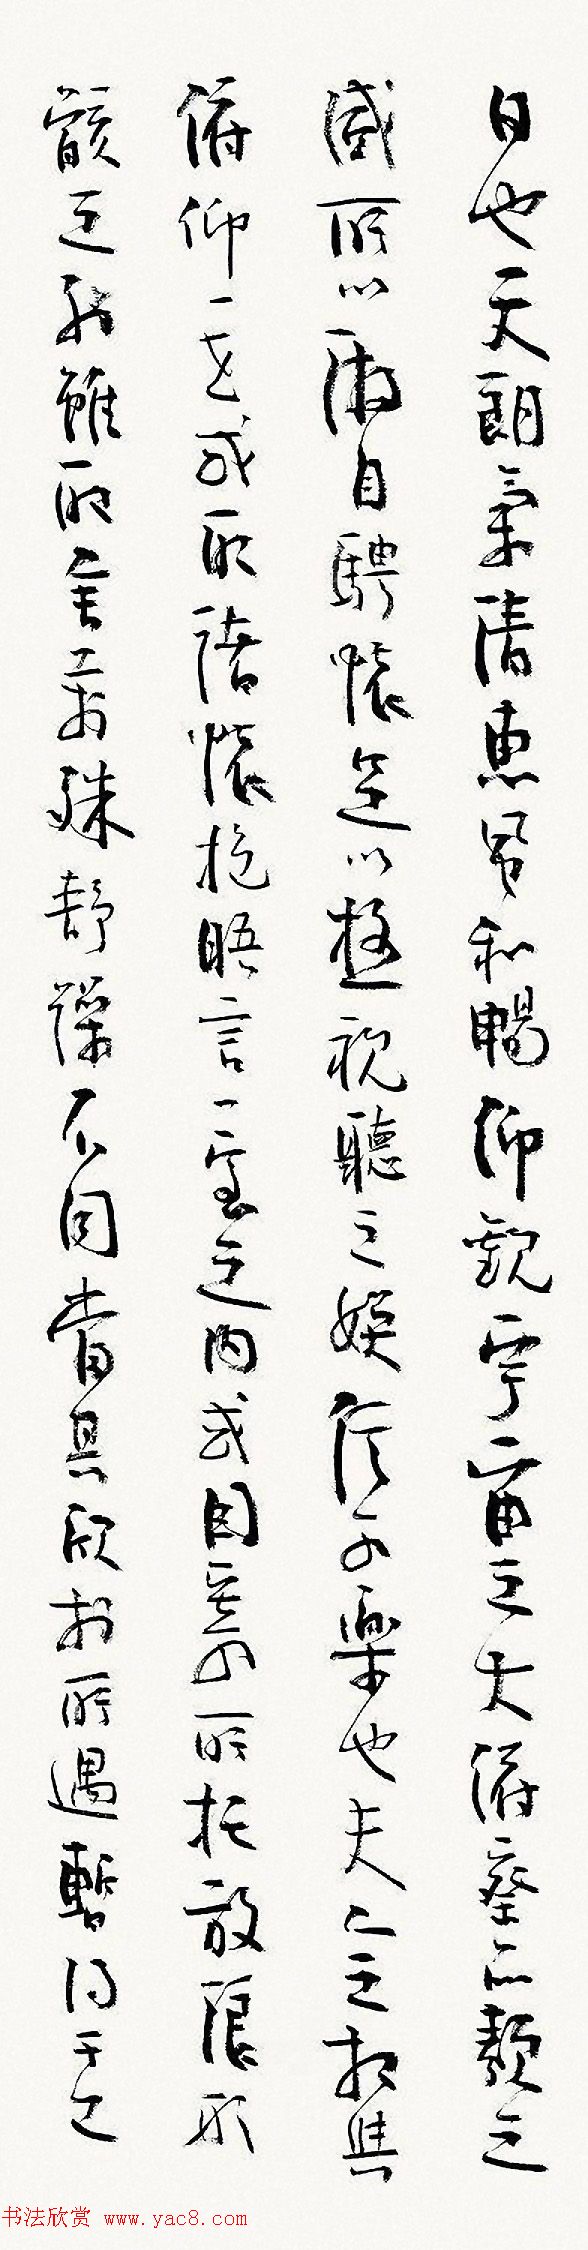 日也天朗氣清惠風和暢仰觀宇宙之大俯察品類之
盛所以游目騁懷足以極視聽之娛信可樂也夫人之相與
俯仰一世或取諸懷抱晤言一室之內或因寄所託放浪形
骸之外雖取舍萬殊靜躁不同當其欣於所遇暫得于己
书法欣赏 www.yac8.com